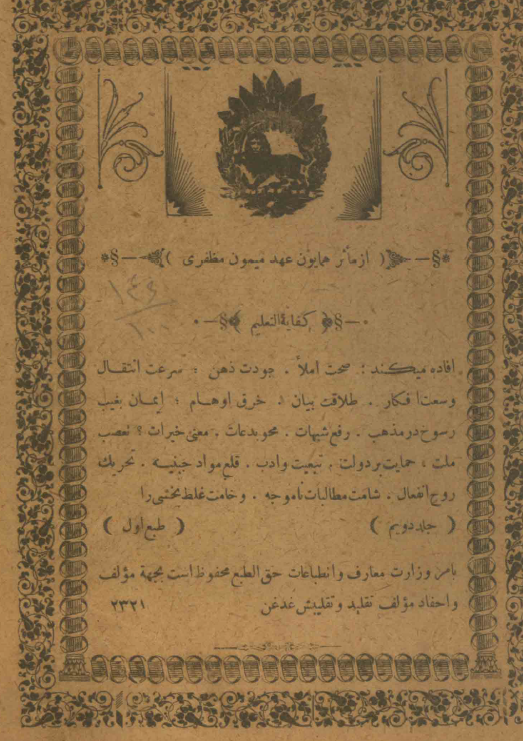 ( از مآثر همایون عهد میمون مظفری )
۱۴۶
۱۰۰
کفایةالتعلیم
افاده میکند : صحت املاً . جودت ذهن : سرعت انتقال
وسعت افکار . طلاقت بیان . خرق اوهام : ایمان بغیب
رسوخ در مذهب . رفع شبهات . محو بدعات . معنی خیرات : تعصب
ملت ، حمایت بر دولت . تبعیت وادب . قلع مواد . تحریك
روح انفعال . شامت مطالبات ناموجه . وخامت غلط بخشی را
( جلد دویم ) ( طبع اول )
بامر وزارت معارف وانطباعات حق الطبع محفوظ است بجهة مؤلف
واحفاد مؤلف تقلید و تقلیبش غدغن ۲۳۲۱